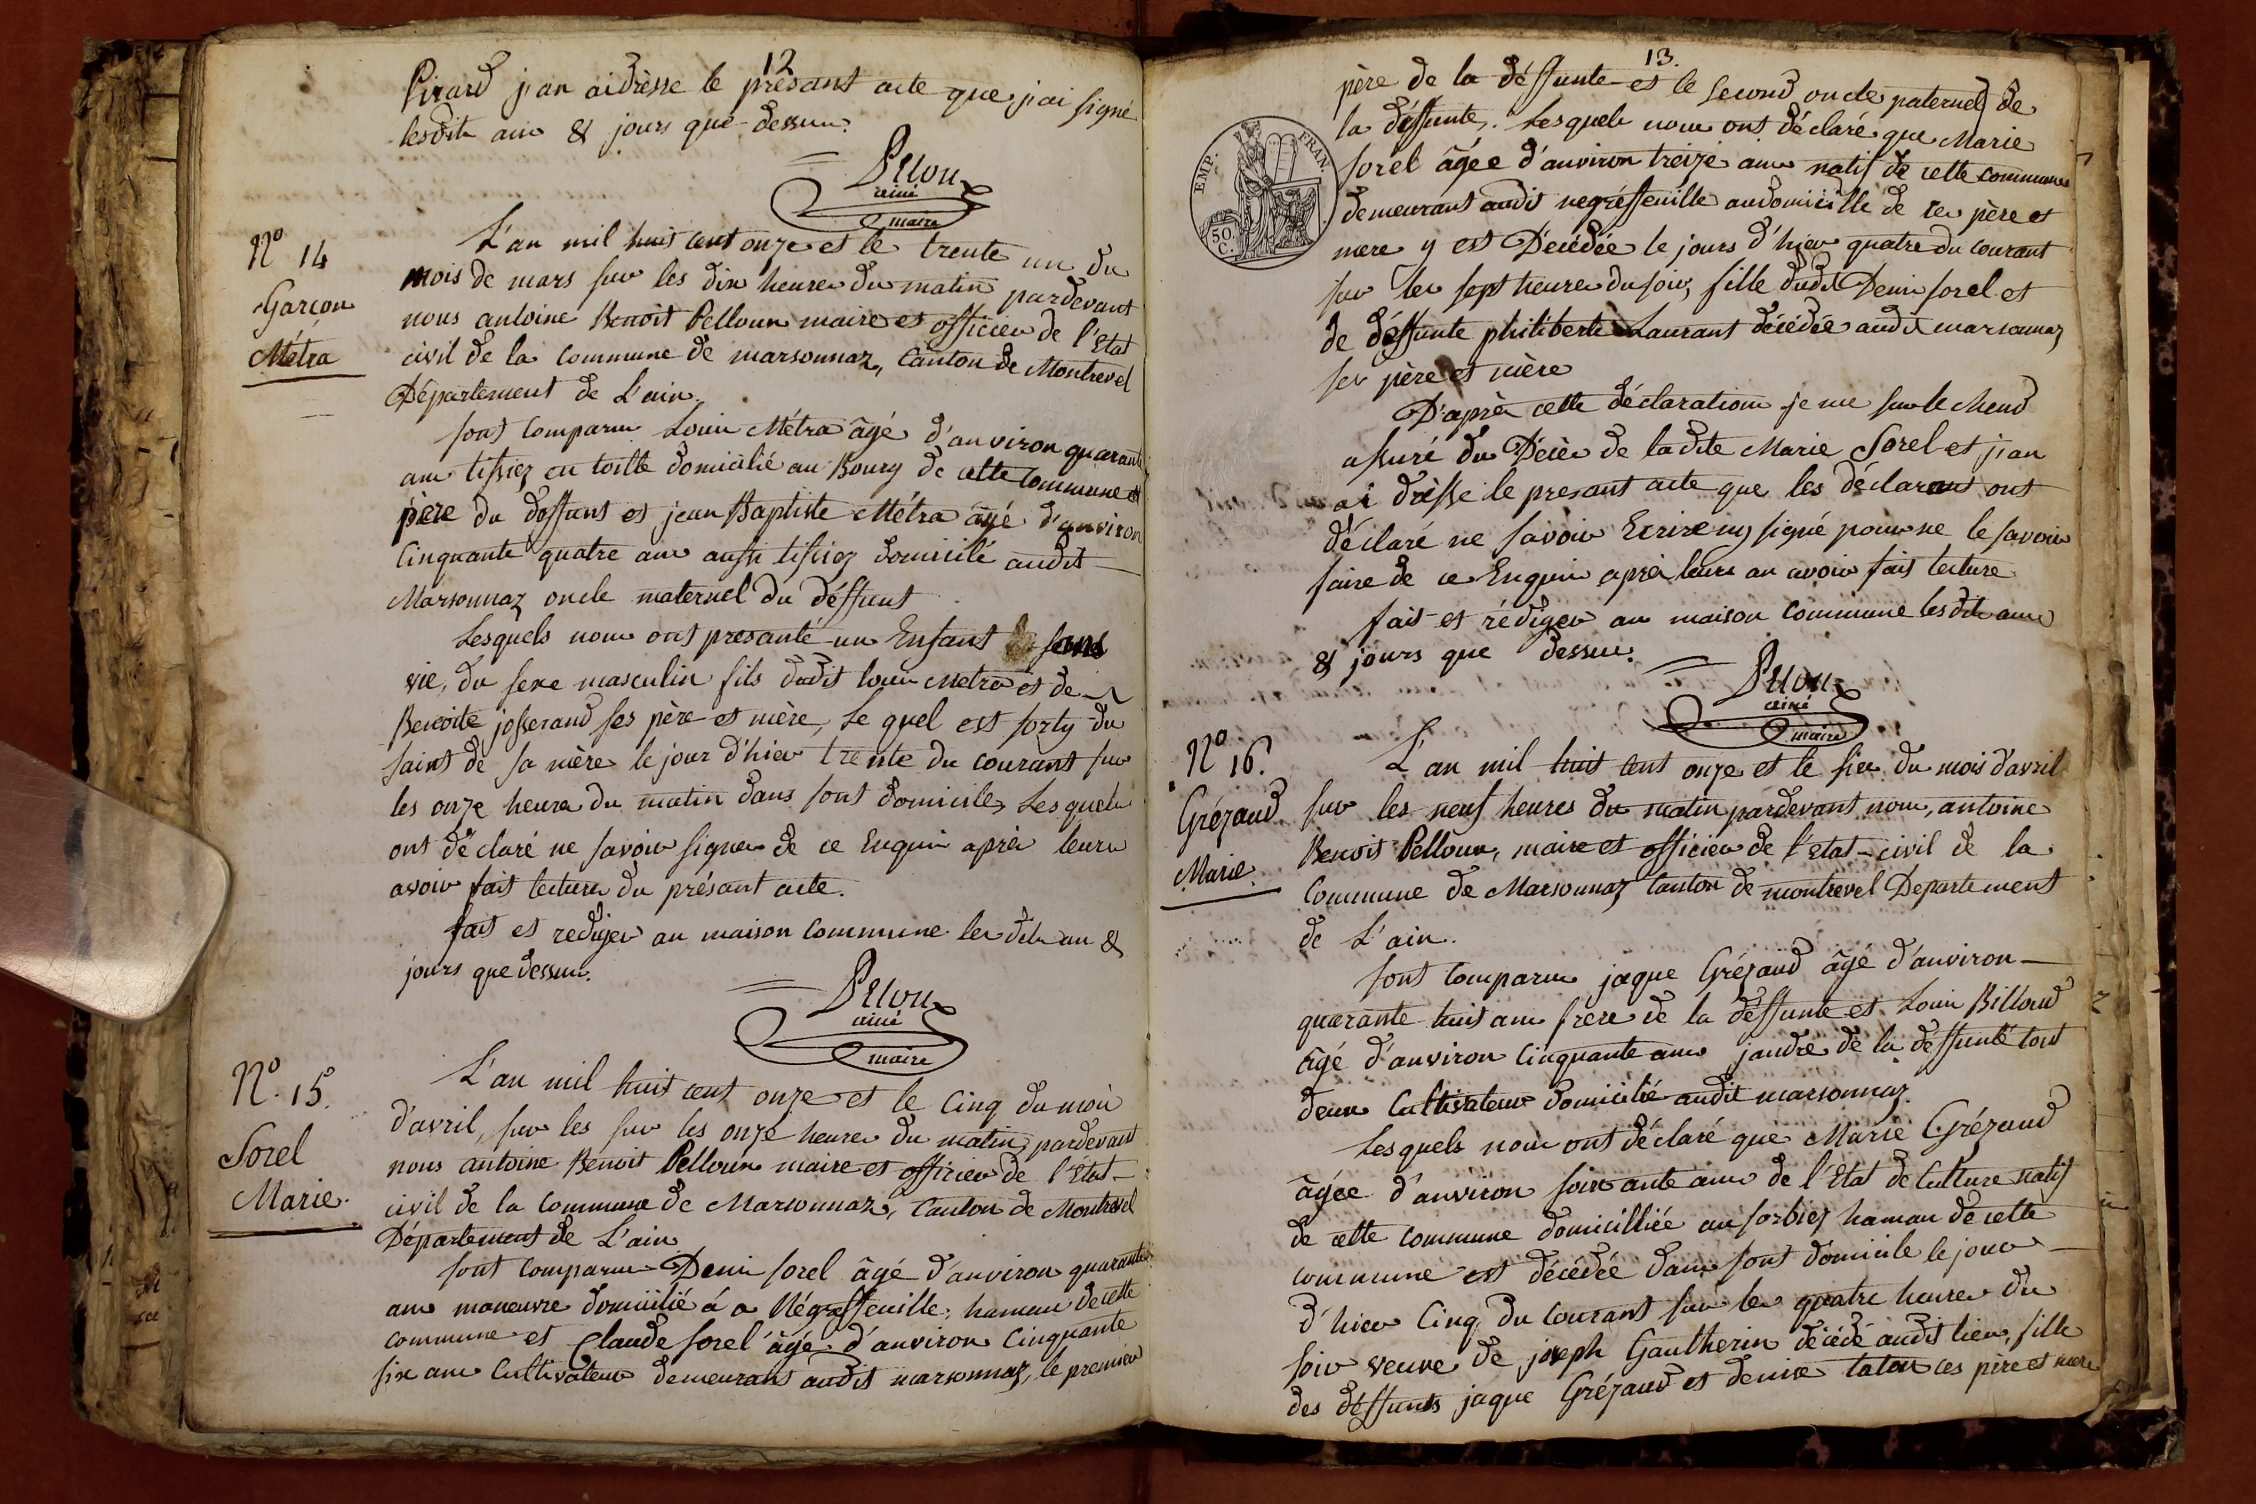 12
Pirard j'an ai drèsse le présant acte que j'ai signé
lesdits ans & jours que dessus.
Pelloux
ainé
maire
N° 14
Garçon
Métra
L'an mil huit cent onze et le trente un du
mois de mars sur les dix heures du matin pardevant
nous antoine Benoit Pelloux maire et officier de l'Etat
civil de la commune de marsonnaz, Canton de Montrevel
Département de L'ain.
sont comparus Louis Métra âgé d'anviron quarante
ans tissiez en toille domicilié au Bourg de cette Commune et
père du deffunt et jean Baptiste Métra âgé d'anviron
Cinquante quatre ans aussi tissiez domicilié audit
Marsonnaz oncle maternel du déffunt
Lesquels nous ont presanté un Enfant sans
vie, du sexe masculin fils dudit louis Métra et de
Benoite josserand ses père et mère, Le quel est sorty du
saint de sa mère le jour d'hier trente du courant sur
les onze heures du matin dans sont domicile, Lesquels
ont déclaré ne savoir signer de ce Enquis après leurs
avoir fait lecture du présant acte.
fait et rediger an maison commune les dits an &
jours que dessus.
Pelloux
ainé
maire
N° 15.
Sorel
Marie.
L'an mil huit cent onze et le Cinq du mois
d'avril, sur les sur les onze heures du matin, pardevant
nous antoine Benoit Pelloux maire et officier de l'Etat-
civil de la commune de Marsonnaz, Canton de Montrevel
Département de L'ain
sont comparus Denis sorel âgé d'anviron quarante
ans maneuvre domicilié á a Négreffeuille, hameau de cette
commune et Claude sorel âgé d'anviron Cinquante
six ans Cultivateur demeurant audit marsonnaz, le premier
13.
père de la déffunte et le second oncle paternel de
la déffunte. Lesquels nous ont déclaré que Marie
sorel âgée d'anviron treize ans natif de cette commune
demeurant audit negréffeuille audomicille de ses père et
mere y est Décédée le jours d'hier quatre du courant
sur les sept heures du soir, fille dudit Denis sorel et
de déffunte philiberte Laurant décédée audit marsonnaz
ses père et mère
EMP. FRAN.
50.
C.
D'après cette déclaration je me sur le chend
assuré du Décès de ladite Marie Sorel et j'an
ai drèsse le presant acte que les déclarant ont
déclaré ne savoir Ecrire ny signé pour ne le savoir
faire de ce Enquis après leurs an avoir fait lecture
fait et rédiger an maison commune lesdits ans
& jours que dessus.
Pelloux
ainé
maire
N° 16.
Grézaud
Marie.
L'an mil huit cent onze et le six du mois d'avril
sur les neuf heures du matin pardevant nous, antoine
Benoit Pelloux, maire et officier de l'Etat-civil de la
Commune de Marsonnaz Canton de montrevel Departement
de L'ain.
sont comparus jaque Grézaud âgé d'anviron
quarante huit ans frère de la déffunte et Louis Billoud
âgé d'anviron Cinquante ans jandre de la déffunte tout
deux Cultivateur domicilié audit marsonnaz.
Lesquels nous ont déclaré que Marie Grézaud
âgée d'anviron soixante ans de l'Etat de Culture natif
de cette commune domicilliée au sorbiez haman de cette
commune est décédée dans sont domicile le jour
d'hier Cinq du Courant sur les quatre heures du
soir veuve de joseph Gautherin décédé audit lieu, fille
des déffunts jaque Grézaud et denise taton ces père et mere